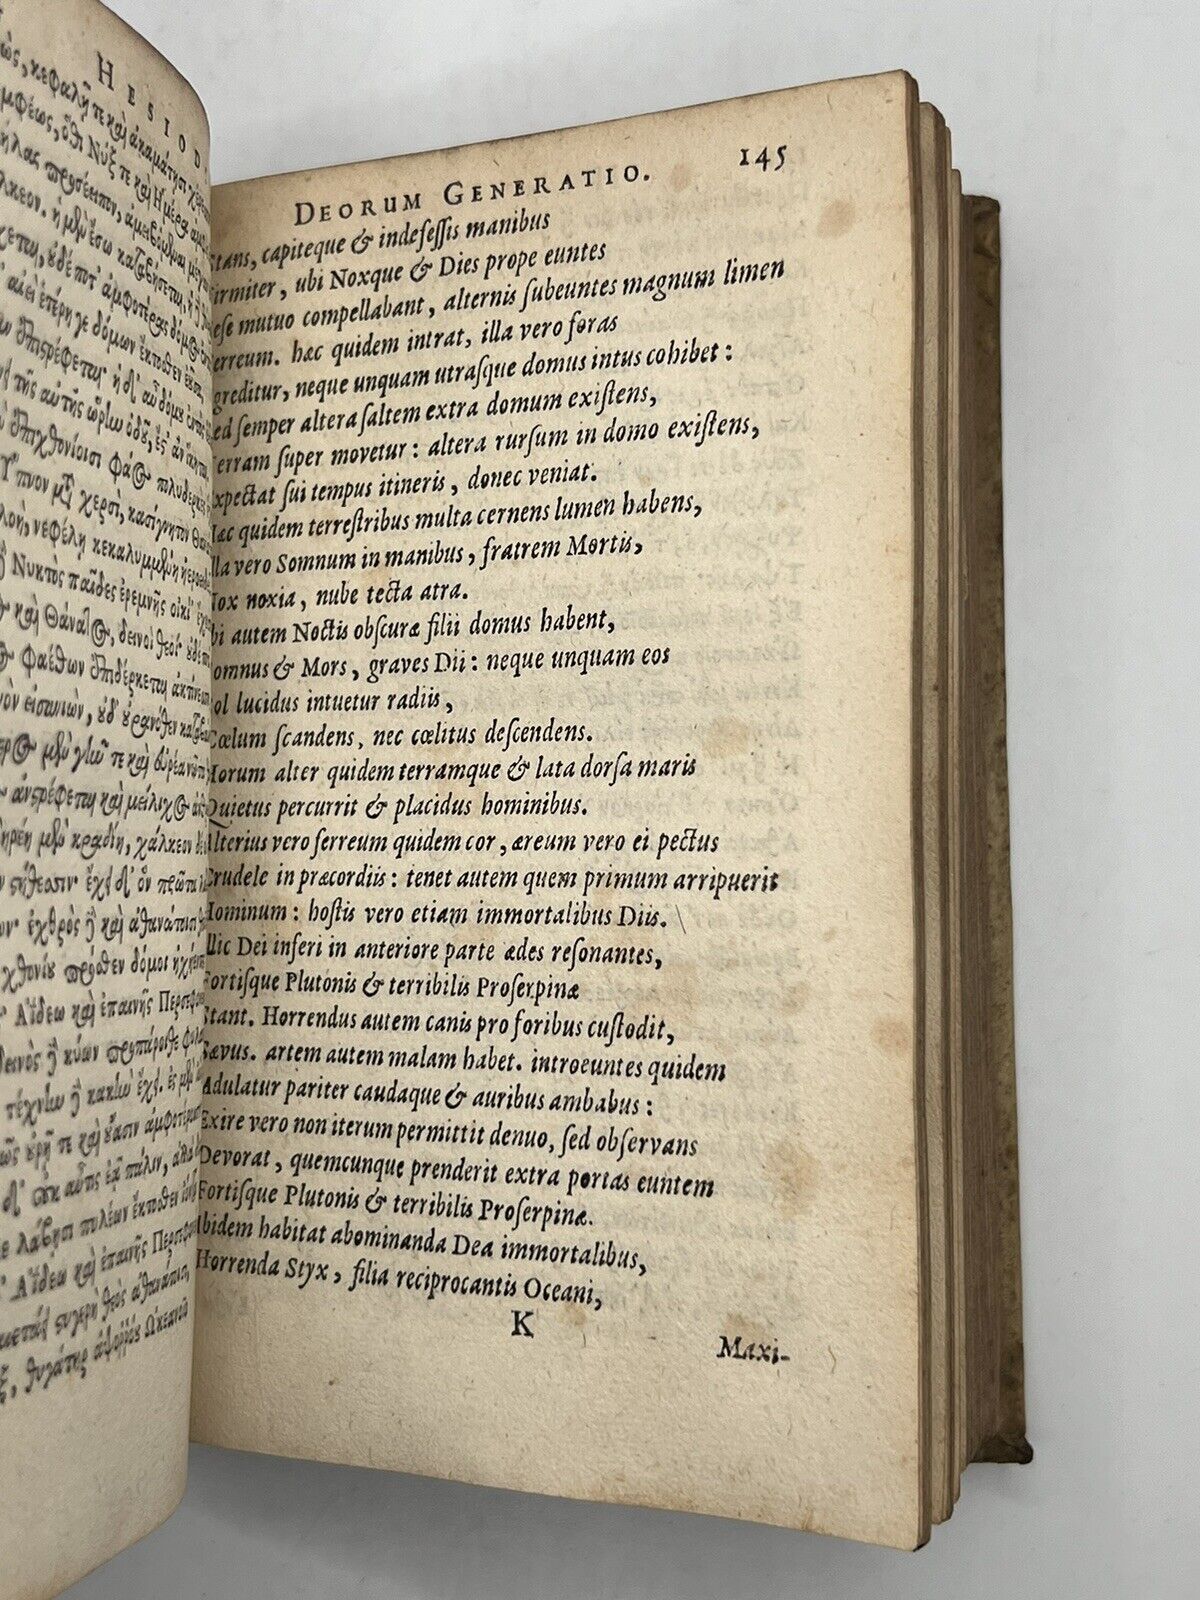 HESIOD
κεφαλῇ τε καὶ ἀκαμάτῃσι
ὅθι Νύξ τε καὶ Ἡμέρα
προσέειπον, ἀμειβόμεναι
χάλκεον. ἡ μὲν ἔσω καταβήσεται, ἡ
οὐδέ ποτ' ἀμφοτέρας δόμος
αἰεὶ ἑτέρη γε δόμων ἔκτοσθεν
ἐπιστρέφεται· ἡ δ' αὖ δόμου ἐντὸς
τῆς αὐτῆς ὥρην ὁδοῦ, ἔς τ' ἂν
ἐπιχθονίοισι φάος πολυδερκὲς
Ὕπνον μετὰ χερσὶ, κασίγνητον
νεφέλῃ κεκαλυμμένη
Νυκτὸς παῖδες ἐρεμνῆς οἰκί'
καὶ Θάνατος, δεινοὶ θεοί· οὐδέ
Φαέθων ἐπιδέρκεται ἀκτίνεσσιν
εἰσανιὼν, οὐδ' οὐρανόθεν
μὲν γῆν τε καὶ εὐρέα νῶτα
ἀνστρέφεται καὶ μείλιχος
μὲν κραδίη, χάλκεον
στήθεσιν· ἔχει δ' ὃν πρῶτα
ἐχθρὸς δὲ καὶ ἀθανάτοισι
χθονίου πρόσθεν δόμοι ἠχήεντες
Ἀΐδεω καὶ ἐπαινῆς Περσεφονείης
δεινὸς δὲ κύων προπάροιθε
τέχνην δὲ κακὴν ἔχει. ἐς μὲν
οὐρῇ τε καὶ οὔασιν ἀμφοτέροισιν
δ' οὐκ αὖτις ἐᾷ πάλιν,
λάβῃσι πυλέων ἔκτοσθεν
Ἀΐδεω καὶ ἐπαινῆς
στυγερὴ θεὸς ἀθανάτοισι,
θυγάτηρ ἀψορρόου Ὠκεανοῦ
DEORUM GENERATIO. 145
Stans, capiteque & indefessis manibus
Firmiter, ubi Noxque & Dies prope euntes
Sese mutuo compellabant, alternis subeuntes magnum limen
Ferreum. hæc quidem intrat, illa vero foras
Egreditur, neque unquam utrasque domus intus cohibet:
Sed semper altera saltem extra domum existens,
Terram super movetur: altera rursum in domo existens,
Expectat sui tempus itineris, donec veniat.
Hæc quidem terrestribus multa cernens lumen habens,
Illa vero Somnum in manibus, fratrem Mortis,
Nox noxia, nube tecta atra.
Ibi autem Noctis obscuræ filii domus habent,
Somnus & Mors, graves Dii: neque unquam eos
Sol lucidus intuetur radiis,
Cœlum scandens, nec cœlitus descendens.
Horum alter quidem terramque & lata dorsa maris
Quietus percurrit & placidus hominibus.
Alterius vero ferreum quidem cor, æreum vero ei pectus
Crudele in præcordiis: tenet autem quem primum arripuerit
Hominum: hostis vero etiam immortalibus Diis.
Illic Dei inferi in anteriore parte ædes resonantes,
Fortisque Plutonis & terribilis Proserpinæ
Stant. Horrendus autem canis pro foribus custodit,
Sævus. artem autem malam habet. introeuntes quidem
Adulatur pariter caudaque & auribus ambabus:
Exire vero non iterum permittit denuo, sed observans
Devorat, quemcunque prenderit extra portas euntem
Fortisque Plutonis & terribilis Proserpinæ.
Ibidem habitat abominanda Dea immortalibus,
Horrenda Styx, filia reciprocantis Oceani,
K
Maxi-